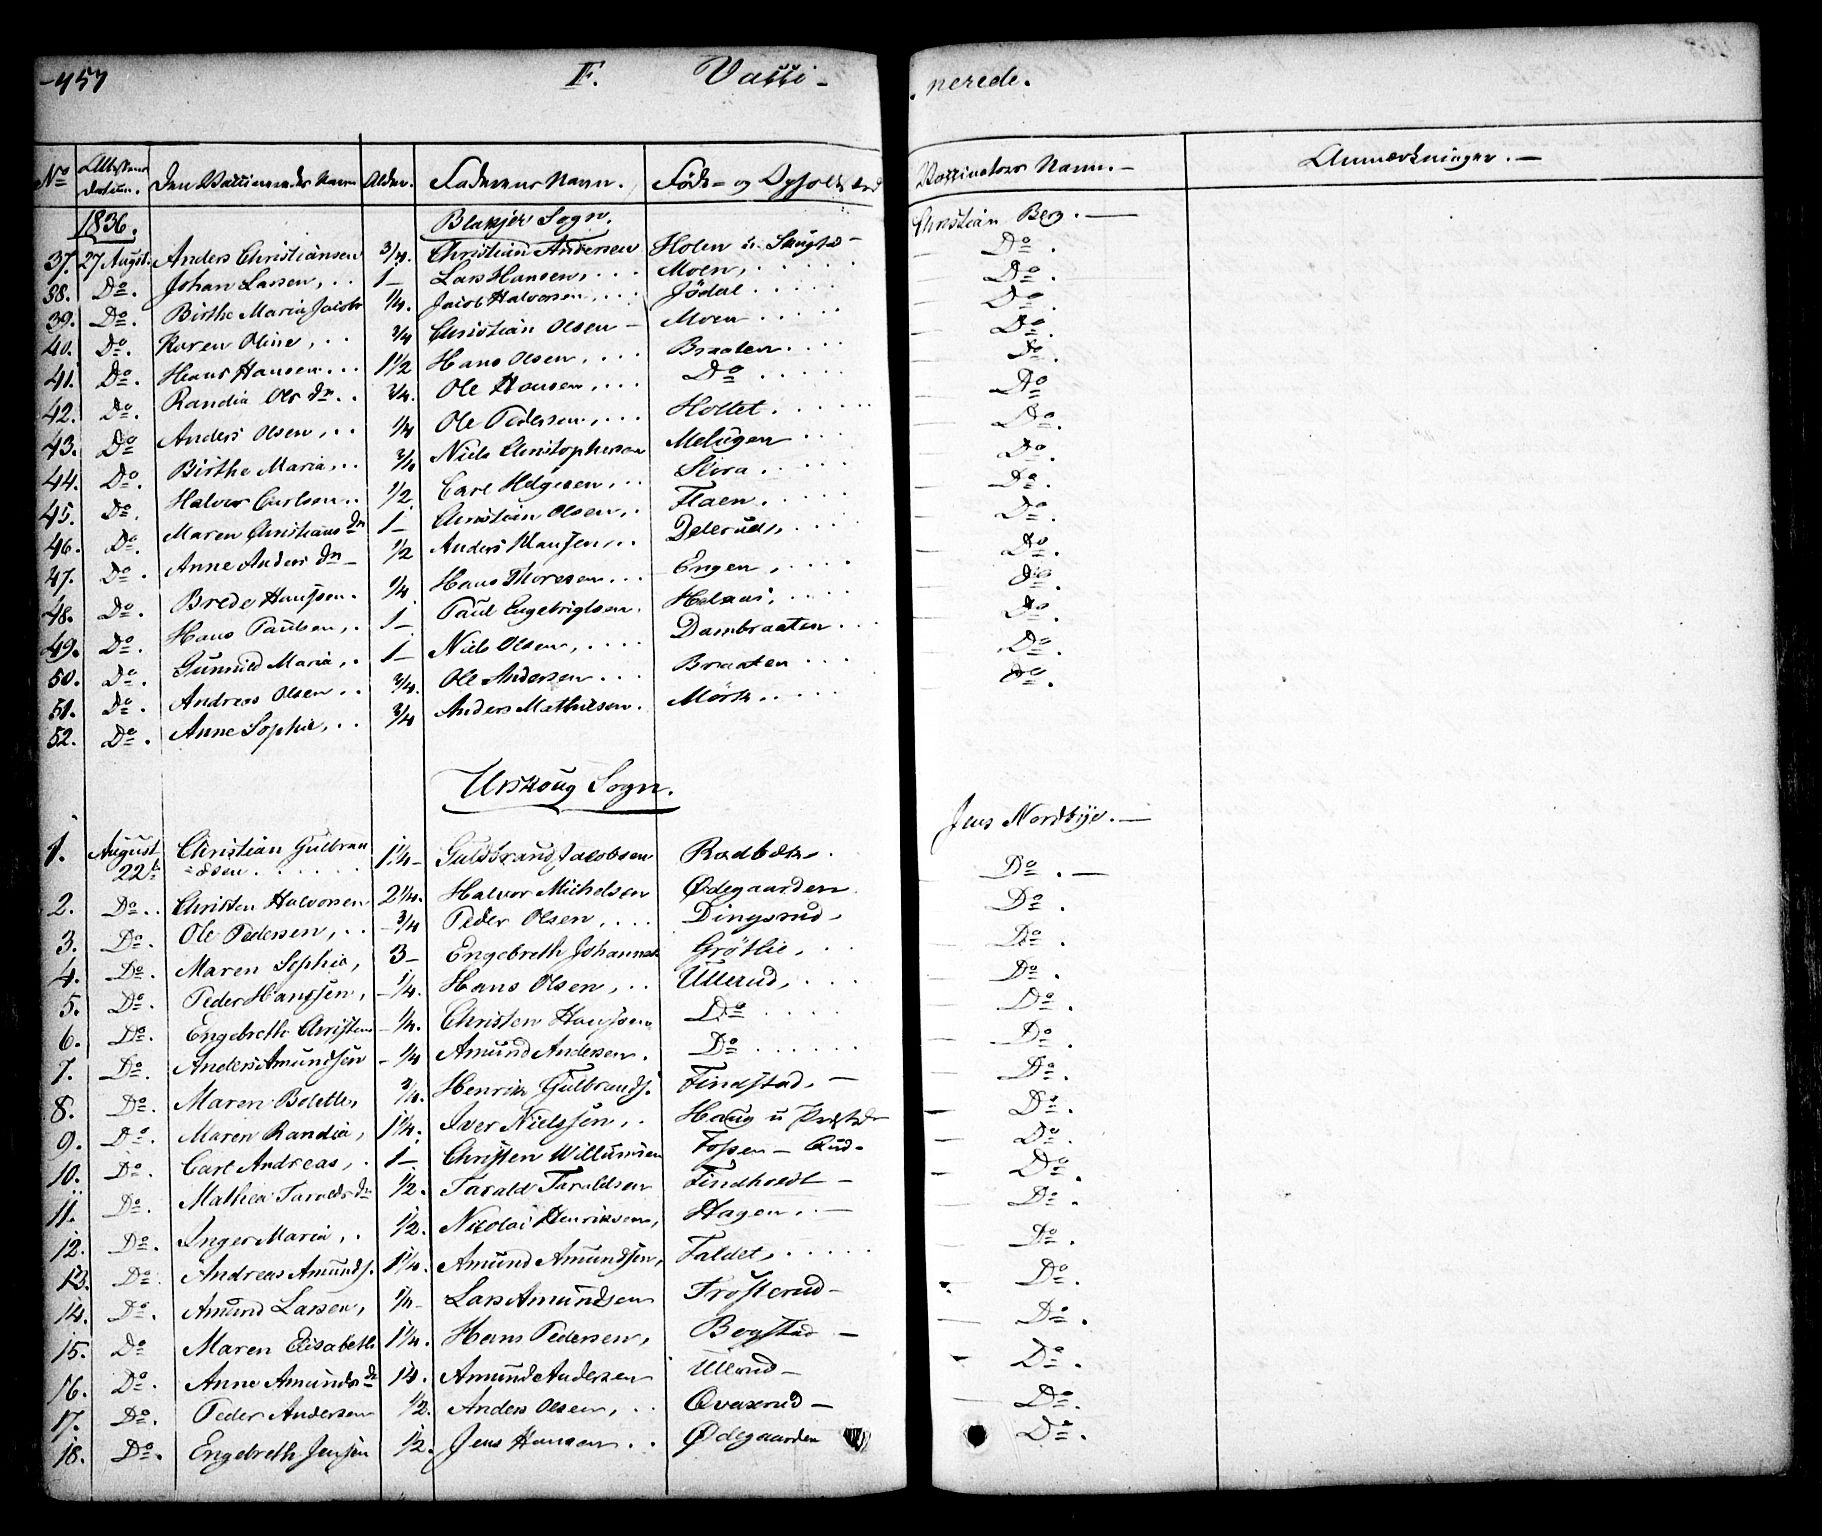 457 F. Vacci- nerede.
No Attestens Datum. Den Vaccineredes Navn Alder. Faderens Navn. Føde- og Opholdssted Vaccinateurs Navn. Anmærkninger.
1836. Blakjer Sogn. Christian Berg.
37. 27 August. Anders Christiansen 3/4. Christian Andersen Holen Do.
38. Do. Johan Larsen, 1 Lars Hansen, Moen, Do.
39. Do. Birthe Maria Jacobs 1/4. Jacob Halvorsen, Jödal Do.
40. Do. Karen Oline, 3/4 Christian Olsen Moen Do.
41. Do. Hans Hansen 1 1/2 Hans Olsen, Braaten Do.
42. Do. Randia Ols Dr. 3/4. Ole Hansen, Do Do
43. Do Anders Olsen, 1/4 Ole Pedersen, Holtet. Do.
44. Do. Birthe Maria, 3/4 Niels Christophersen Melŭgen Do.
45. Do. Halvor Carlsen 1/2. Carl Helgesen, Skora Do.
46. Do. Maren Christians Dr 1 Christian Olsen, Flaen. Do.
47. Do. Anne Anders Dr 1/2 Anders Do.
48. Do. Brede Hansen. 1/4. Hans Thoresen Engen, Do.
49. Do. Hans Paulsen, 1 Paul Engebrigtsen. Do.
50. Do. Gunnild Maria, 1 Niels Olsen, Dambraaten Do.
51. Do. Andreas Olsen 3/4. Ole Andersen Braaten Do.
52. Do. Anne Sophie, 3/4 Anders Mathiesen. Mörk
Urskoug Sogn.
Jens Nordbye.
1. August 22de Christian Gulbrandsen 1 1/4 Guldbrand Jacobsen Rødbek. Do.
2. Do. Christen Halvorsen 2 1/4. Halvor Michelsen Ødegaarden Do.
3. Do. Ole Pedersen, 3/4 Peder Olsen, Dingsrud Do.
4. Do. Maren Sophia, 3 Engebreth Johannes Grötlie, Do.
5. Do. Peder Hanssen, 1/4. Hans Olsen, Ullerud, Do.
6. Do. Engebreth Christens 1/4. Christen Hanssen Do Do.
7. Do. Anders Amundsen 1/4 Amund Andersen. Do Do.
8. Do. Maren Bolette, Henrik Gulbrands. Findstad. Do.
9. Do. Maren Randia, 1 1/4. Iver Nielssen, Haug u Do.
10. Do. Carl Andreas, 1 Christen Willumsen Fossen Do.
11. Do. Mathea Taralds Dr 1/2. Tarald Taraldsen Findholdt Do.
12. Do. Inger Maria, 1/2. Nicolai Henriksen, Hagen. Do.
13. Do. Andreas Amunds. 1 1/4. Amund Amundsen, Faldet, Do.
14. Do. Amund Larsen, 1/4 Lars Amundsen Frosterud Do.
15. Do Maren Elisabeth 1 1/4. Hans Pedersen, Bogstad Do.
16. Do. Anne Amunds Dr 1/4. Amund Andersen Ullerud Do.
17. Do. Peder Andersen 1/2. Anders Olsen, Qvaserud Do.
18. Do. Engebreth Jensen 1/2. Jens Hansen Ødegaarden Do.